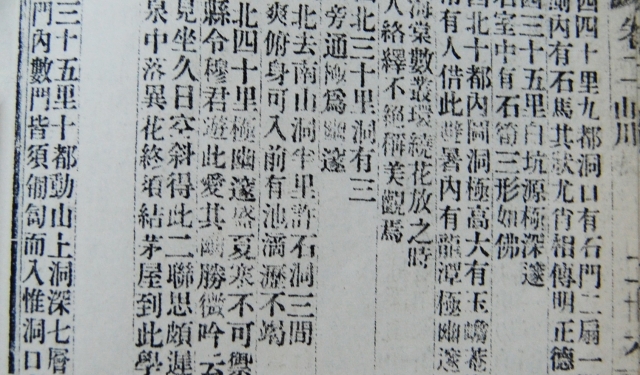 卷二 山川 二十六
四十里九都洞口有石門二扇一
內有石馬其狀尤肖相傳明正德
三十五里白坑源極深邃
石室中有石筍三形如佛
北十都內圓洞極高大有玉蟾
有人借此避暑內有龍潭極幽邃
海棠數叢環繞花放之時
人絡繹不絕稱美觀焉
北三十里洞有三
旁通極爲幽邃
北去南山洞半里許石洞三間
爽俯身可入前有池滴瀝不竭
北四十里極幽邃盛夏寒不可禦
縣令穆君遊此愛其幽勝微吟云
見坐久日空斜得此二聯思頗遲
泉中落異花終須結茅屋到此學
三十五里十都勤山上洞深七層
門內數門皆須匍匐而入惟洞口